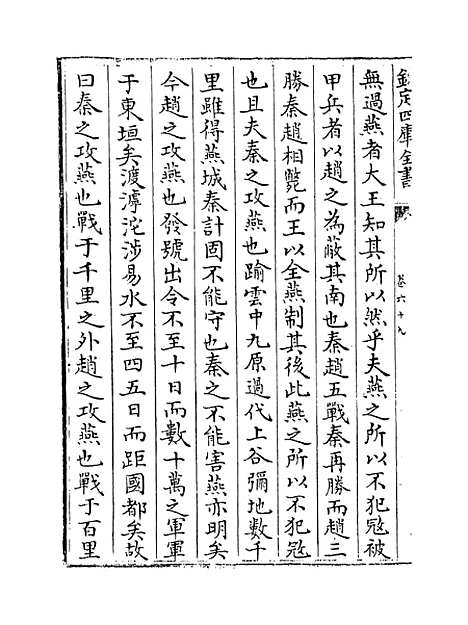 欽定四庫全書
卷六十九
無過燕者大王知其所以然乎夫燕之所以不犯冦被
甲兵者以趙之為蔽其南也秦趙五戰秦再勝而趙三
勝秦趙相斃而王以全燕制其後此燕之所以不犯冦
也且夫秦之攻燕也踰雲中九原過代上谷彌地數千
里雖得燕城秦計固不能守也秦之不能害燕亦明矣
今趙之攻燕也發號出令不至十日而數十萬之軍軍
于東垣矣渡滹沱涉易水不至四五日而距國都矣故
曰秦之攻燕也戰于千里之外趙之攻燕也戰于百里